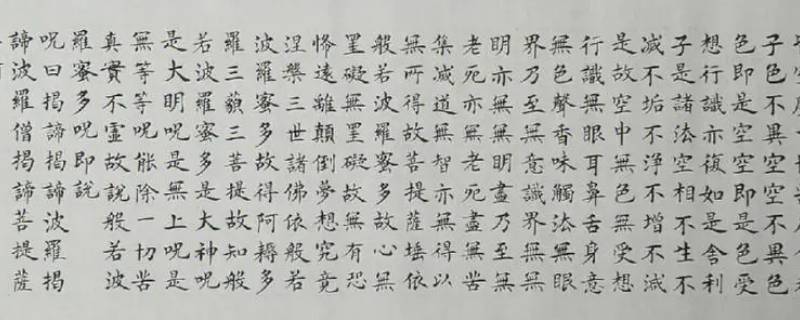 子色不異空空不異色
色即是空空即是色受
想行識亦復如是舍利
子是諸法空相不生不
滅不垢不淨不增不減
是故空中無色無受想
行識無眼耳鼻舌身意
無色聲香味觸法無眼
界乃至無意識界無無
明亦無無明盡乃至無
老死亦無老死盡無苦
集滅道無智亦無得以
無所得故菩提薩埵依
般若波羅蜜多故心無
罣礙無罣礙故無有恐
怖遠離顛倒夢想究竟
涅槃三世諸佛依般若
波羅蜜多故得阿耨多
羅三藐三菩提故知般
若波羅蜜多是大神呪
是大明呪是無上呪是
無等等呪能除一切苦
真實不虛故說般若波
羅蜜多呪即說
呪曰揭諦揭諦波羅揭
諦波羅僧揭諦菩提薩